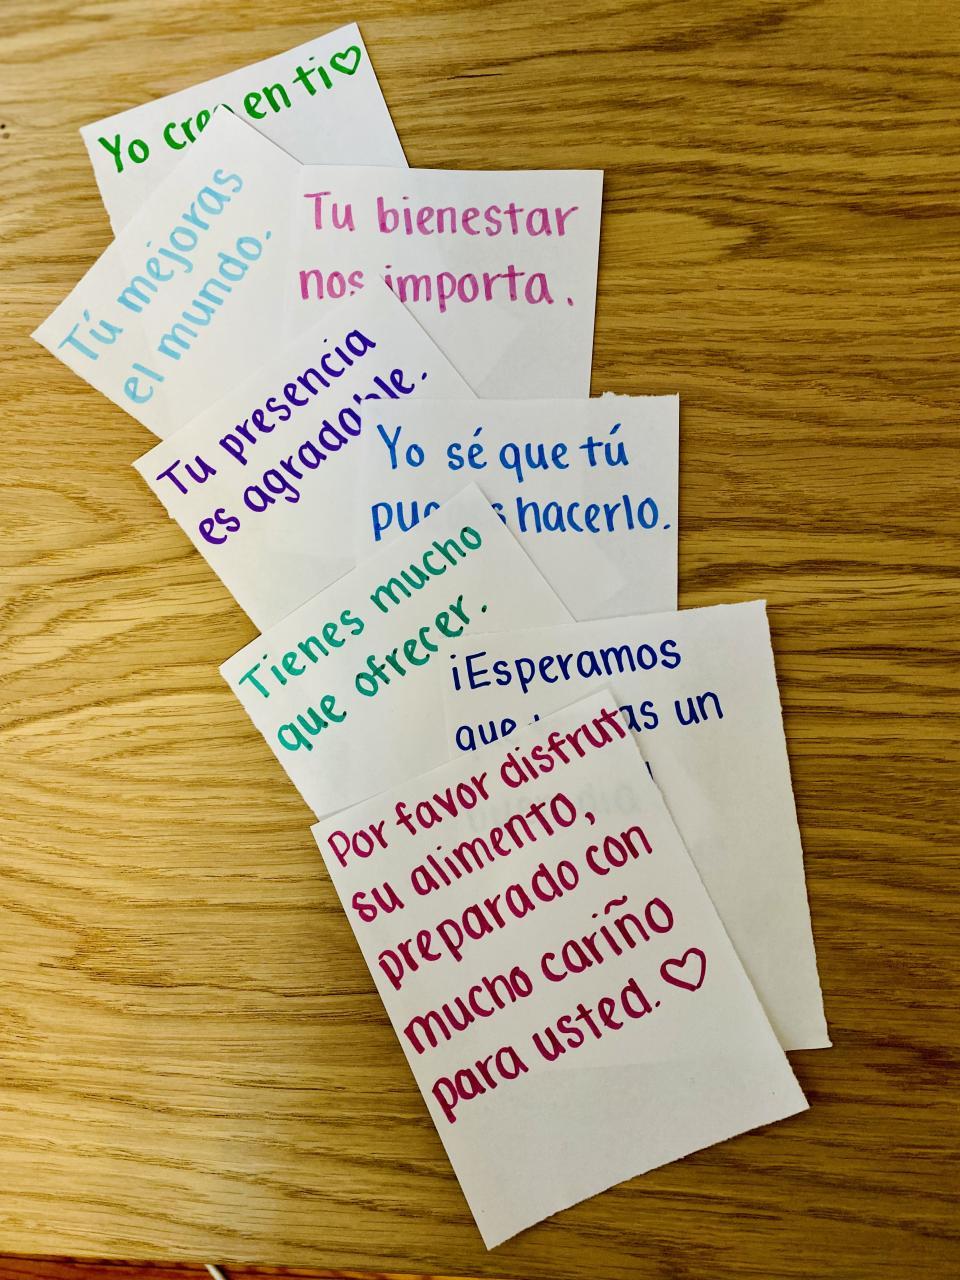 Yo creo en ti♡
Tú mejoras
el mundo.
Tu bienestar
nos importa.
Tu presencia
es agradable.
Yo sé que tú
puedes hacerlo.
Tienes mucho
que ofrecer.
¡Esperamos
que un
Por favor disfrut
su alimento,
preparado con
mucho cariño
para usted. ♡